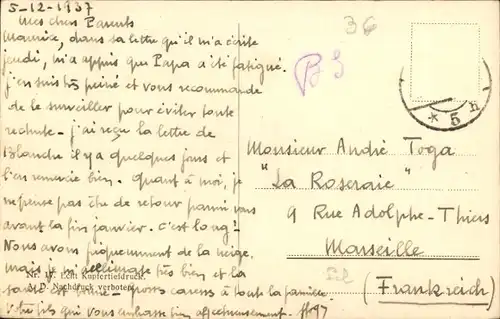 5-12-1937
Mes chers Parents
Maurice, dans sa lettre qu'il m'a écrite
jeudi, m'a appris que Papa a été fatigué.
j'en suis très peiné et vous recommande
de le surveiller pour éviter toute
rechute - j'ai reçu la lettre de
Blanche il y a quelques jours et
l'en remercie bien. Quant à moi, je
ne pense pas être de retour parmi vous
avant la fin janvier. c'est long!
Nous avons fréquemment de la neige,
mais je m'acclimate très bien et la
santé est bonne - caresses à toute la famille
Votre fils qui vous embrasse bien affectueusement.
Nr. 19. Echt Kupfertiefdruck.
Nachdruck verboten
36
B3
* 5 n
Monsieur André Toga
"La Roseraie"
9 Rue Adolphe-Thiers
Marseille
(Frankreich)